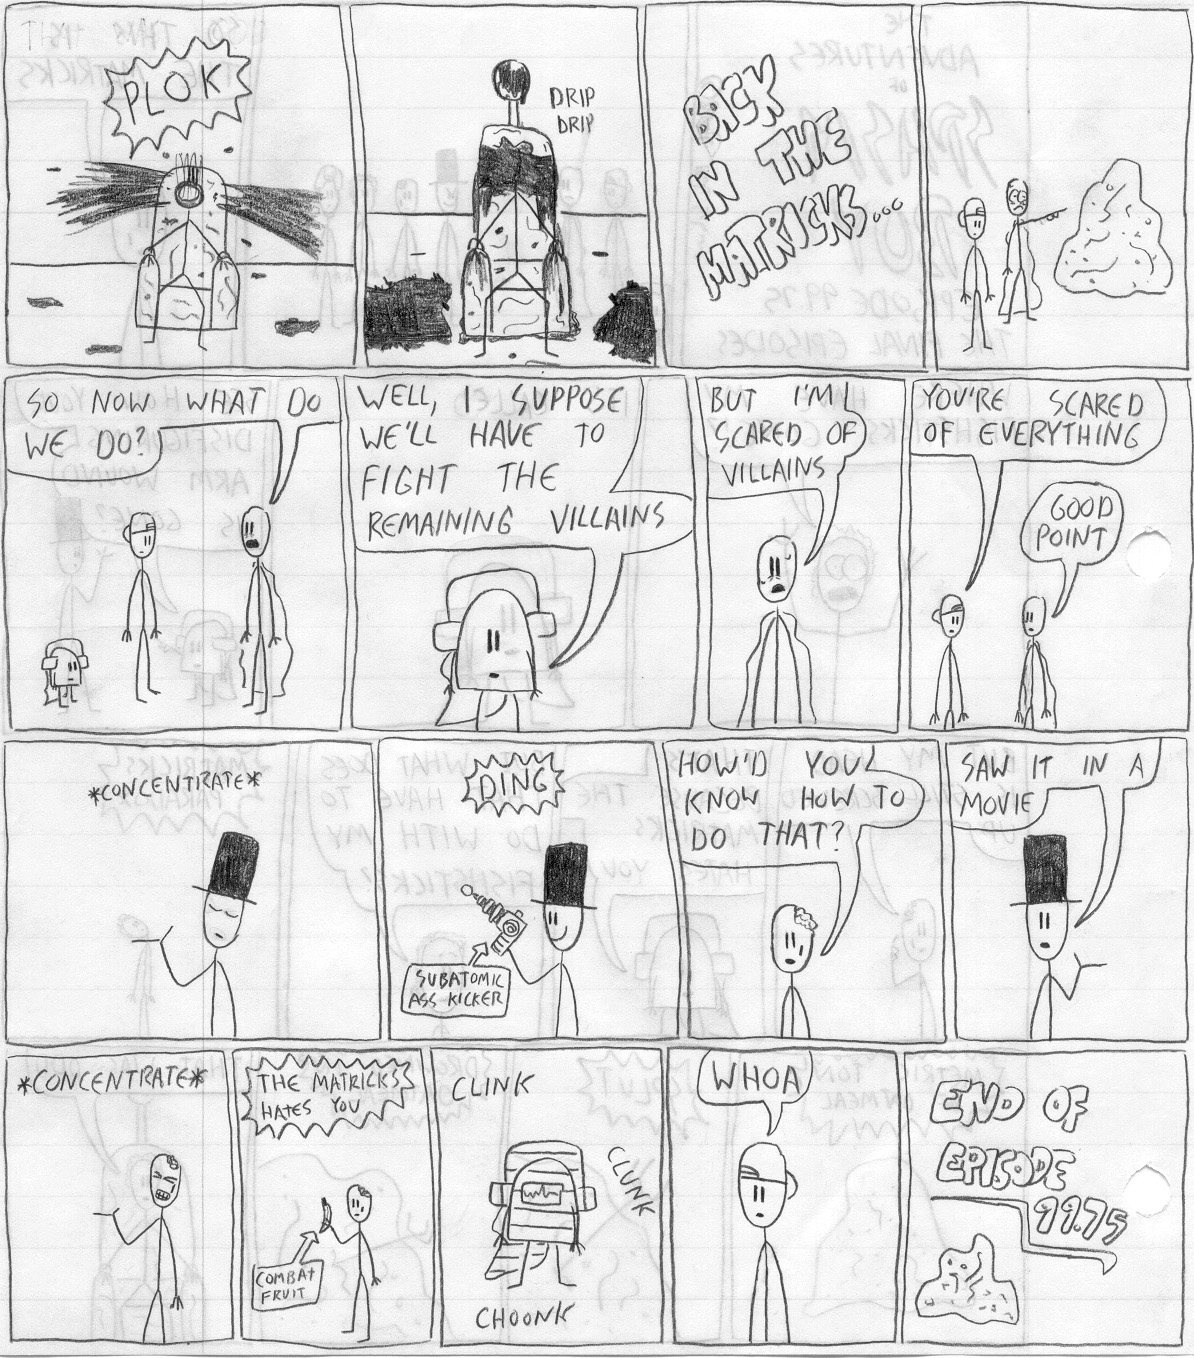 PLOK
DRIP
DRIP
BACK
IN THE
MATRICKS...
SO NOW WHAT DO
WE DO?
WELL, I SUPPOSE
WE'LL HAVE TO
FIGHT THE
REMAINING VILLAINS
BUT I'M
SCARED OF
VILLAINS
YOU'RE SCARED
OF EVERYTHING
GOOD
POINT
*CONCENTRATE*
DING
SUBATOMIC
ASS KICKER
HOW'D YOU
KNOW HOW TO
DO THAT?
SAW IT IN A
MOVIE
*CONCENTRATE*
THE MATRICKS
HATES YOU
COMBAT
FRUIT
CLINK
CLUNK
CHOONK
WHOA
END OF
EPISODE
99.75